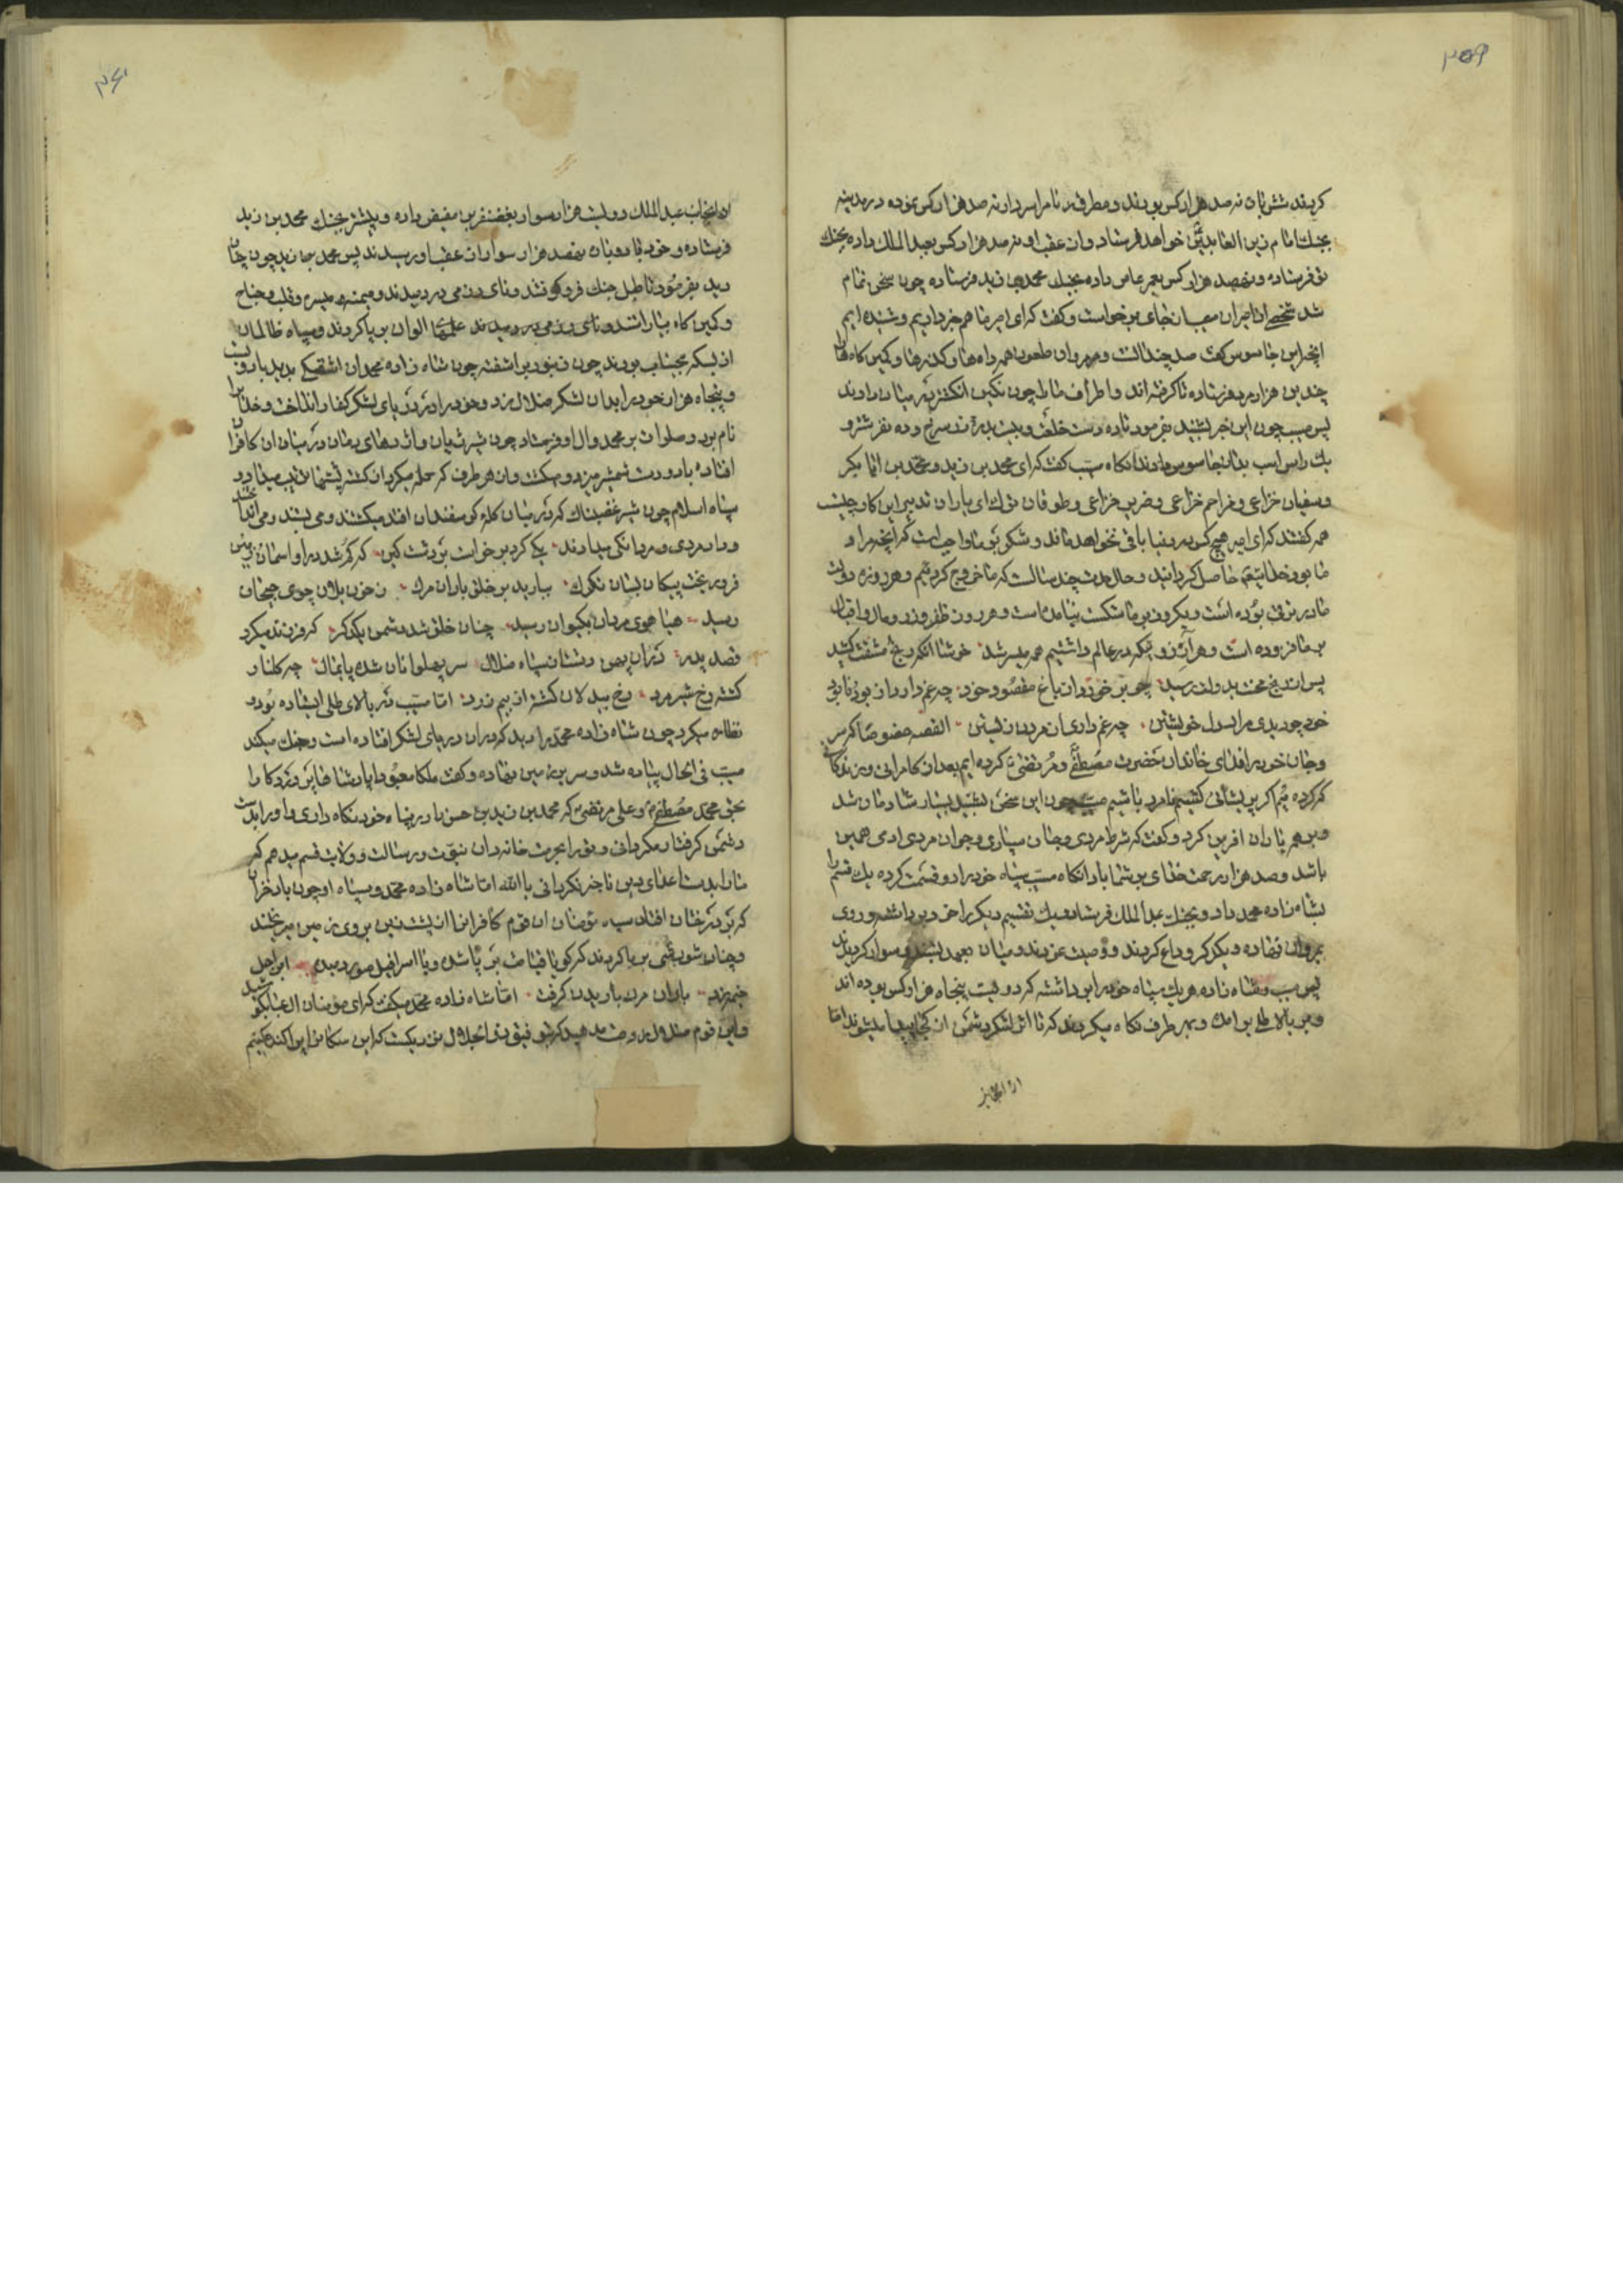 ۳۵۹
کردند شش بان نه صد هزار کس بودند و مطرف نام را سردار نه صد هزار کس نموده در مدینه
بجنك امام زین العابدین خواهد فرستاد و از عقب او نه صد هزار کس بعبد الملك داده بجنك
تو فرستاده و نهصد هزار کس بعمر عاص داده بجنك محمد بن زید فرستاده چون سخن تمام
شد شخصی از امیران مسیب از جای برخواست و گفت که ای امیر ما هم خبر داریم و شنیده ایم
انچه این جاسوس گفت صد چندانست و مروان طعون همه راه ها و کذرها و کمین کاه ها
چندین هزار مرد فرستاده تا کرفته اند و اطراف ما را چون نکین انکشتری در میان دارند
پس مسیب چون این خبر بشنید بفرمود تا ده دست خلعت و بیست بدره زر سرخ و ده نفر شتر و
یك راس اسب بدان جاسوس دادند انکاه مسیب گفت که ای محمد بن زید و محمد بن
و سفیان خزاعی و مزاحم خزاعی و ضریر خزاعی و طوقان ترك ای یاران تدبیر این کار چیست
همه کفتند که ای امیر هیچ کس در دنیا باقی نخواهد ماند و شکر بر ما واجب است که انچه مراد
ما بود خدایتعالی حاصل کردانید و حال مدت چند سالست که ما خروج کردیم و هر روزه دولت
ما در ترقی بوده است و یکروز بر ما شکست نیامده است و هر روز ظفر و زر و مال و اقبال
بر ما فزوده است و هر آرزو که در عالم داشتیم همه میسر شد خوشا انکه رنج مشقت کشید
پس از رنج محنت بدولت رسید چو بر خوردی از باغ مقصود خود چه غم دارد از بود نابود
خود چو دیدی مراد دل خویشتن چه غم داری از مردن زیستن القصه خصوصا که سر
و جان خود را فدای خاندان حضرت مصطفی و مرتضی کرده ایم بعد از کامرانی و زندکانی
که کرده ایم اکر پریشانی کشیم نامرد باشیم مسیب چون این سخن بشنید بسیار شادمان شد
و بر همه یاران افرین کرد و گفت که شرط مردی و جان سپاری و جوان مردی ادی همین
باشد و صد هزار رحمت خدای بر شما باد انکاه مسیب سپاه خود را دو قسمت کرده یك قسم را
بشاه زاده محمد داد و بجنك عبد الملك فرستاد و یك تقسیم دیکر را خود برداشته و روی
بمروان نهاده و یکدیکر وداع کردند و وصیت کردند و میان بعهد بستند و سوار کردیدند
پس مسیب و شاه زاده هر یك سپاه خود را برداشته که دویست پنجاه هزار کس بوده اند
و بر بالای طلی بر امده و بهر طرف نکاه میکردند که تا اثر لشکر دشمن از کجا پیدا میشود اما
از انجانب
۳۶۰
از انجانب عبد الملك دویست هزار سوار بغضنفر بن مفیض داده و پیشتر بجنك محمد بن زید
فرستاده و خود با رو بان هفصد هزار سوار از عقب او رسیدند پس محمد بن زید چون چنان
دید بفرمود تا طبل جنك فرو کوفتند و نای رزمی در دمیدند و میمنه و میسره و قلب و جناح
و کمین کاه بیاراستند و نای رزمی در دمیدند علمهای الوان بر پا کردند و سپاه ظالمان
از بسکه بجنبش بودند چون زنبور بر اشفته چون شاه زاده محمد ان اشفتکی بدید با دویست
و پنجاه هزار خود را بدان لشکر ضلال زد و خود را در دریای لشکر کفار انداخت و خدا را
نام برد و صلوات بر محمد و ال او فرستاد چون شیر ژیان و اژدهای دمان در میان ان کافران
افتاده با دو دست شمشیر میزد و میکشت و از هر طرف که حمله میکرد از کشته پشتها
سپاه اسلام چون شیر غضبناك که در میان کله کوسفندان افتد میکشتند و می بستند و می انداختند
و داد مردی و مردانکی میدادند یکی کرد برخواست بر دشت کین که کم شد در او اسمان زمین
فرو ریخت پیکان بسان تکرك ببارید بر خلق باران مرك ز خون یلان جوی جیحان
رسید هیاهوی مردان بکیوان رسید چنان خلق شد دشمن یکدکر که فرزند میکرد
قصد پدر سپاه ضلال سر پهلوانان شده پایمال چه کلنار
کشته رخ شیر مرد رخ بیدلان کشته از بیم زرد اما مسیب در بالای طلی ایستاده بود و
نظاره میکرد چون شاه زاده محمد را دید که در ان دریای لشکر افتاده است و جنك میکند
مسیب فی الحال پیاده شد و سر بر زمین نهاده و گفت ملکا معبودا پادشاها پروردکارا
بحق محمد مصطفی و علی مرتضی که محمد بن زید بن حسن را در پناه خود نکاه داری و او را بدست
دشمن کرفتار مکردانی و تورا بحرمت خانه دان نبوت و رسالت و ولایت قسم میدهم که
ما را بدست اعدای دین عاجز نکردانی یا الله اما شاه زاده محمد و سپاه او چون باد خزان
که بر درختان افتاد سپاه مؤمنان ان قوم کافران را از پشت زین بر روی زمین میریختند
و چنان شورشی بر پا کردند که کویا قیامت بر پا شده و یا اسرافیل صور دمیده ابر اجل
خیمه زد باران مرك باریدن کرفت اما شاه زاده محمد میکفت که ای مومنان
و این قوم ضلال را فرصت مدهید که بتوفیق خدای ذو الجلال